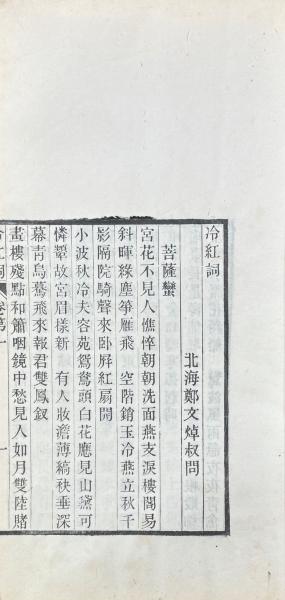 冷紅詞
北海鄭文焯叔問
菩薩蠻
宮花不見人憔悴朝朝洗面燕支淚樓閣易
斜暉綠塵箏雁飛　空階鎖玉冷燕立秋千
影隔院騎聲來卧屏紅扇開
小波秋冷夫容苑鴛鴦頭白花應見山黛可
憐顰故宮眉樣新　有人妝澹薄縞袂垂深
幕青鳥驀飛來報君雙鳳釵
畫樓殘點和簫咽鏡中愁見人如月雙陸賭
卷第一
一